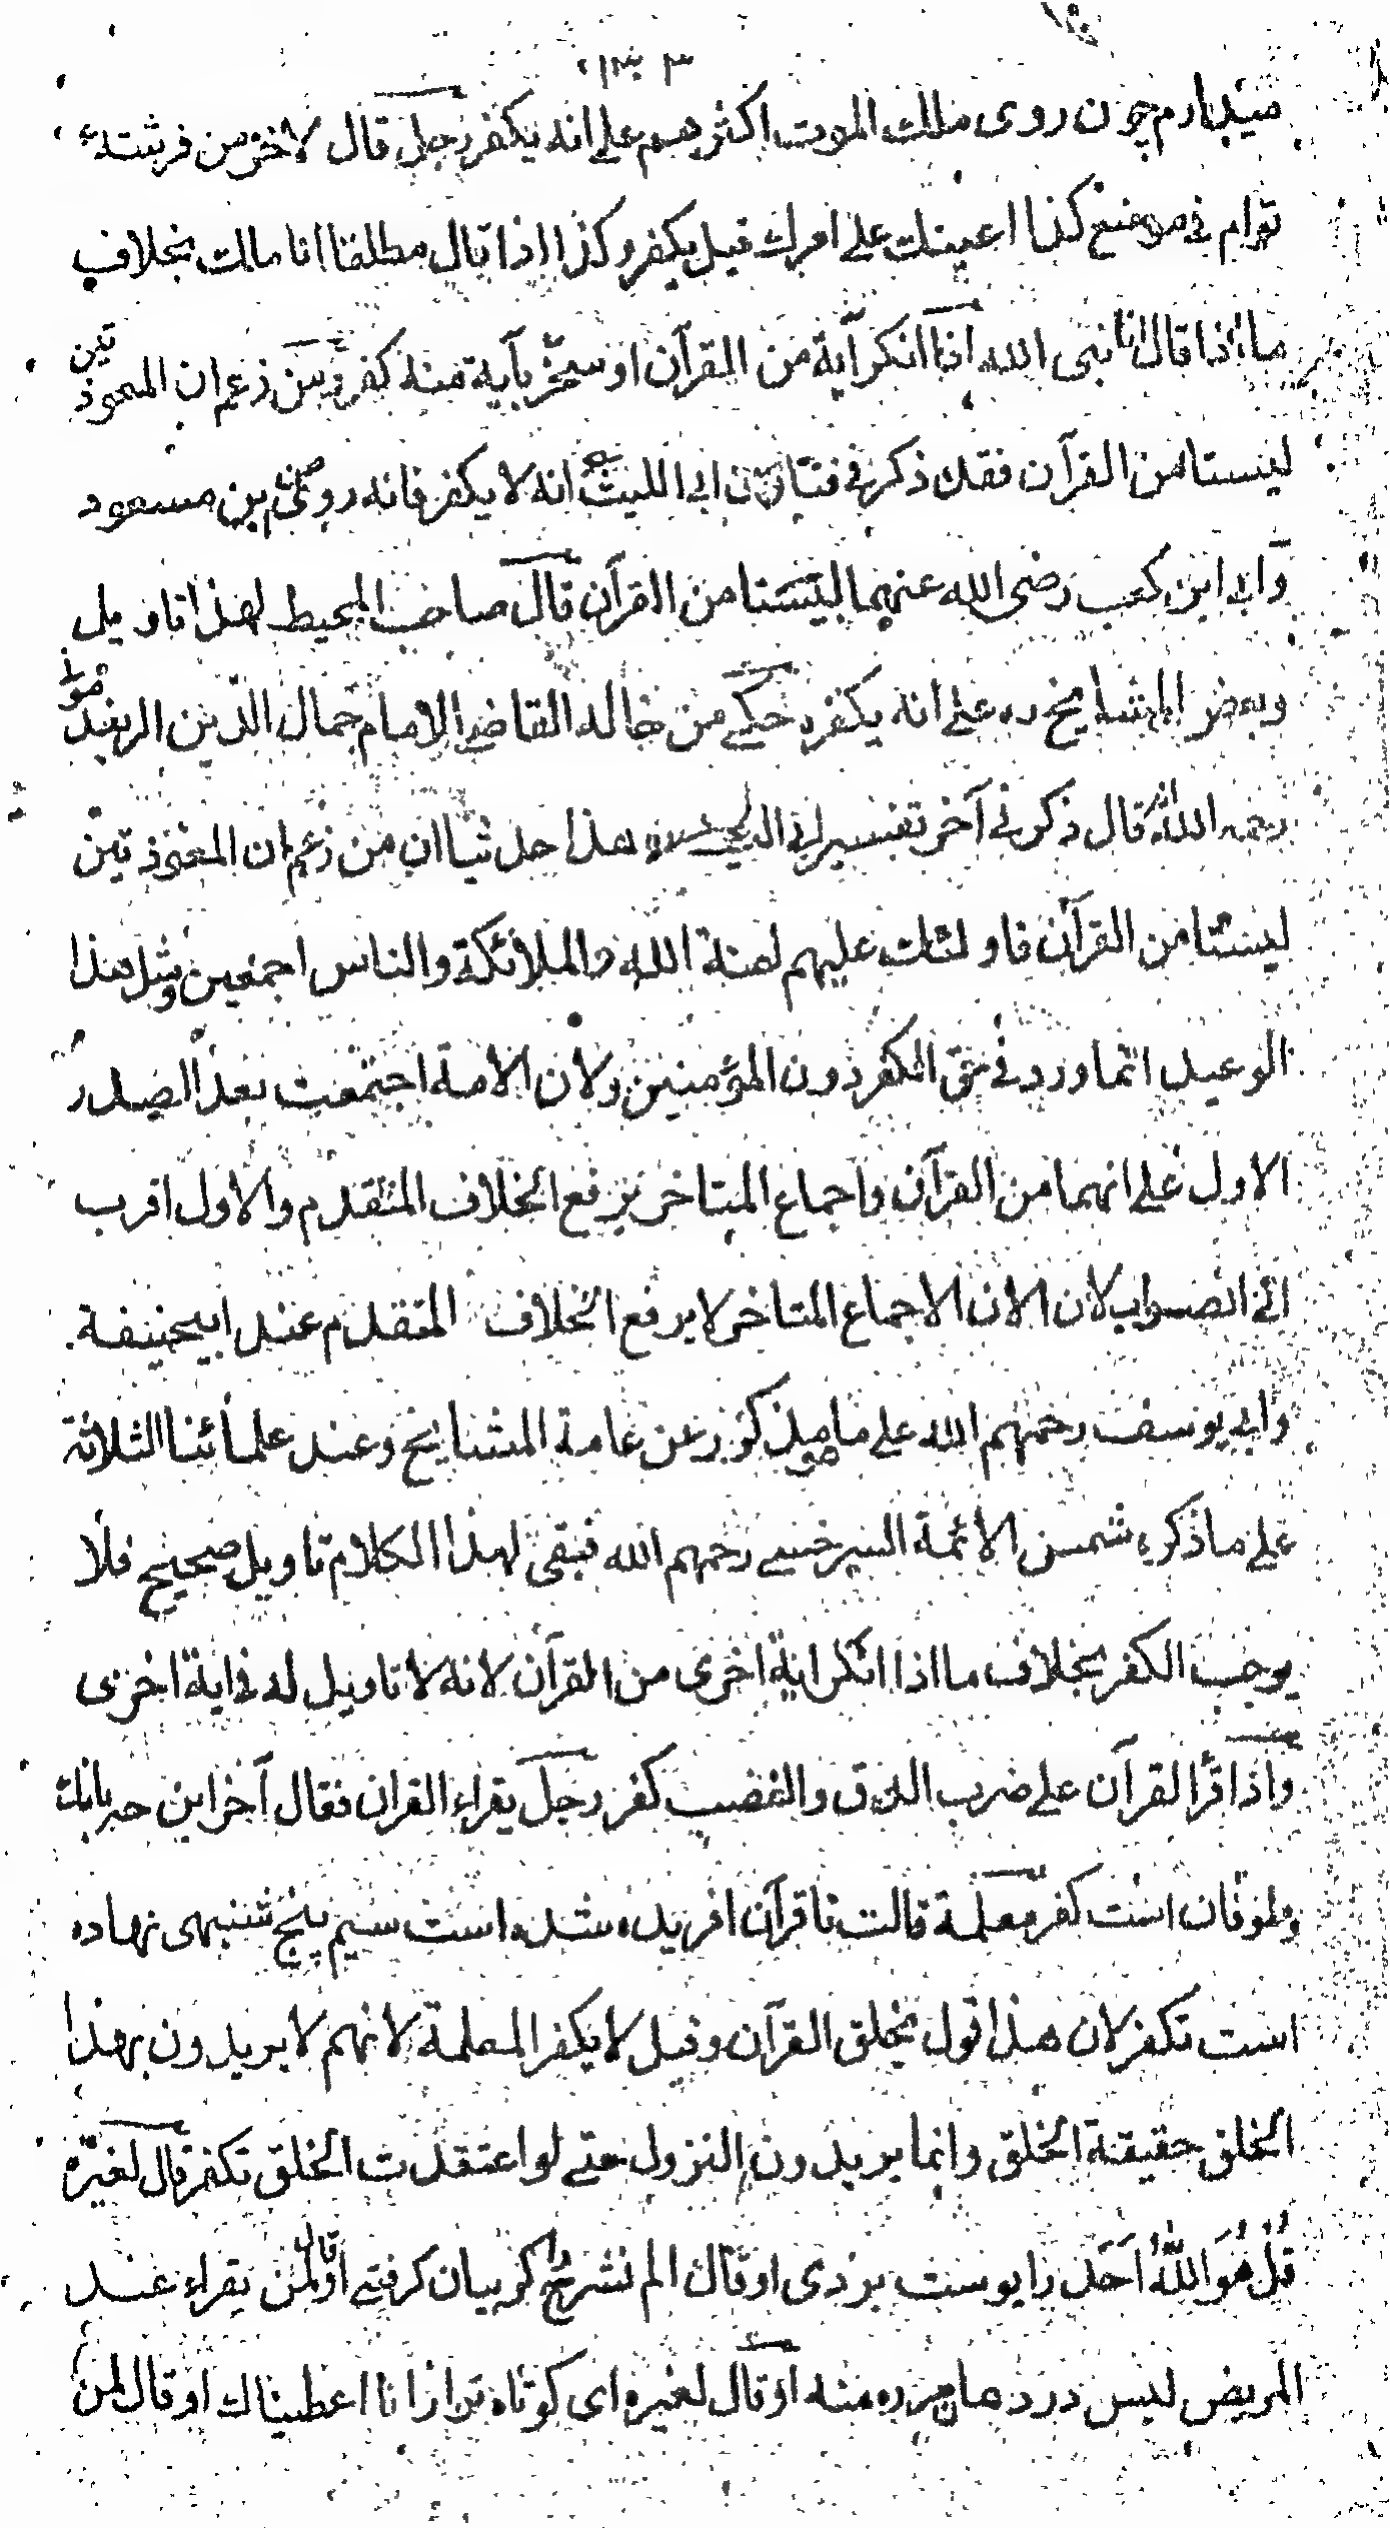 میدارم چون روی ملك الموت اكثرهم على انه يكفر رجل قال لاخر من فرشته
توام فى موضع كذا اعينك على امرك قيل يكفر وكذا اذا قال مطلقا انا ملك بخلاف
ما اذا قال انا نبى الله اذا انكر آية من القرآن او سخر بآية منه كفر ومن زعم ان المعوذتين
ليستا من القرآن فقد ذكر فى فتاوى ابى الليث انه لا يكفر فانه روى بن مسعود
وابى ابن كعب رضى الله عنهما ليستا من القرآن قال صاحب المحيط لهذا تاويل
وبعض المشايخ ره على انه يكفر حكى من خاله القاضى الامام جمال الدين الريغدمونى
رحمه الله قال ذكر فى آخر تفسير ابى هذا حدثنا ان من زعم ان المعوذتين
ليستا من القرآن فاولئك عليهم لعنة الله والملائكة والناس اجمعين ومثل هذا
الوعيد انما ورد فى حق الكفر دون المؤمنين ولان الامة اجتمعت بعد الصدر
الاول على انهما من القرآن واجماع المتاخر يرفع الخلاف المتقدم والاول اقرب
الى الصواب لان الان الاجماع المتاخر لا يرفع الخلاف المتقدم عند ابيحنيفة
وابى يوسف رحمهم الله على ما هو مذكور عن عامة المشايخ وعند علمائنا الثلاثة
على ما ذكره شمس الائمة السرخسى رحمهم الله فبقى لهذا الكلام تاويل صحيح فلا
يوجب الكفر بخلاف ما اذا انكر اية اخرى من القرآن لانه لا تاويل له فى اية اخرى
واذا قرأ القرآن على ضرب الدف والقضيب كفر رجل يقراء القران فقال آخر اين چه بانك
وطوفان است كفر معلمة قالت تا قرآن افريده شده است سيم پنج شنبهى نهاده
است تكفر لان هذا قول بخلق القرآن وقيل لا يكفر المعلمة لانهم لا يريدون بهذا
الخلق حقيقة الخلق وانما يريدون النزول حتى لو اعتقدت الخلق تكفر قال لغيره
قُلْ هُوَ اللّٰهُ اَحَد را پوست بردى او قال الم نشرح را كريبان كرفتى او قال لمن يقراء عند
المريض ليس در دهان مرده منه او قال لغيره اى كوتاه تر از انا اعطيناك او قال لمن